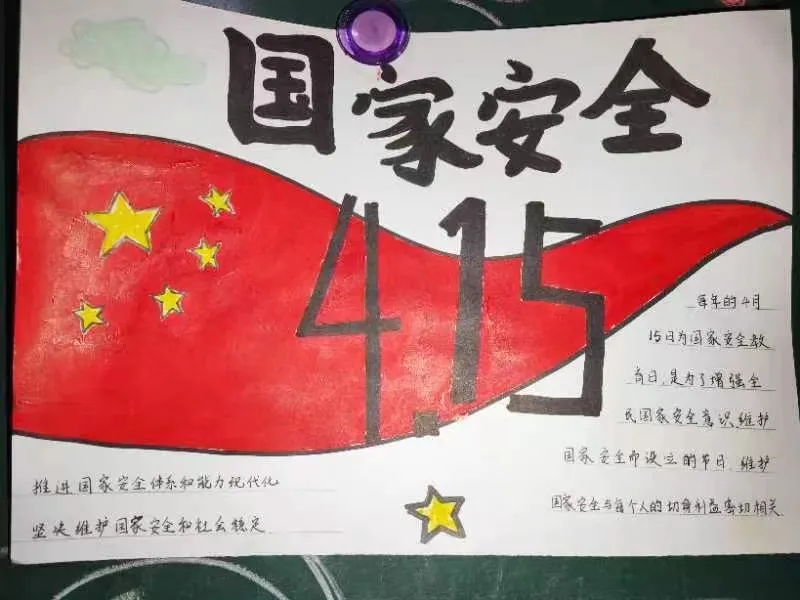 国家安全
4.15
每年的4月
15日为国家安全教
育日,是为了增强全
民国家安全意识维护
国家安全而设立的节日.维护
国家安全与每个人的切身利益密切相关
推进国家安全体系和能力现代化
坚决维护国家安全和社会稳定